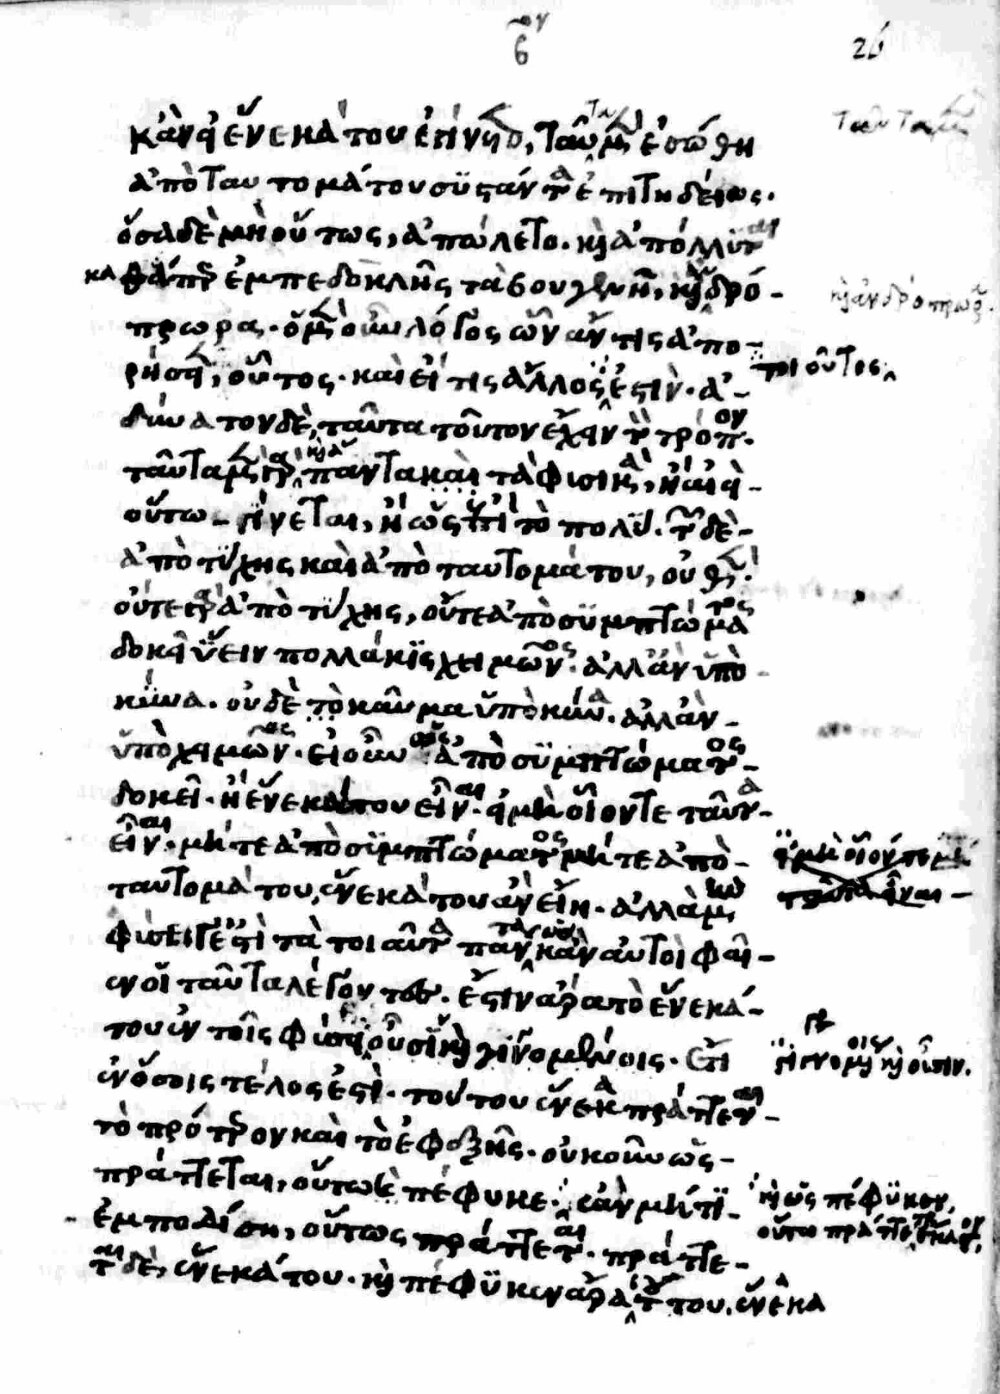 βον
26
κἂν εἰ ἕνεκά του ἐγίνετο, ταῦτα μὲν ἐσώθη
ἀπὸ ταυτομάτου συστάντα ἐπιτηδείως.
ὅσα δὲ μὴ οὕτως, ἀπώλετο. καὶ ἀπόλλυται
καθάπερ ἐμπεδοκλῆς τὰ βουγενῆ, καὶ ἀνδρό-
πρωρα. ὁ μὲν οὖν λόγος ὧν ἄν τις ἀπο-
ρήσειε, οὗτος. καὶ εἴ τις ἄλλος ἐστὶν. ἀ-
δύνατον δὲ, ταῦτα τοῦτον ἔχειν τὸν τρόπον.
ταῦτα μὲν γὰρ, καὶ πάντα καὶ τὰ φύσικὰ, ἢ ἀεὶ
οὕτω γίνεται, ἢ ὡς ἐπὶ τὸ πολύ. τῶν δὲ
ἀπὸ τύχης καὶ ἀπὸ ταυτομάτου, οὐθέν.
οὔτε γὰρ ἀπὸ τύχης, οὔτε ἀπὸ συμπτώματος
δοκεῖ ὕειν πολλάκις χειμῶνος. ἀλλ ἂν ὑπὸ
κύνα. οὐδὲ τὸ καῦμα ὑπὸ κύνα. ἀλλ ἂν
ὑπὸ χειμῶνος. εἰ οὖν ἀπὸ συμπτώματος
δοκεῖ. ἢ ἕνεκά του εἶναι. εἰ μὴ οἷόντε ταῦτα
εἶναι. μήτε ἀπὸ συμπτώματος μήτε ἀπὸ
ταυτομάτου, ἕνεκά του ἂν εἴη. ἀλλὰ μὴν
φύσει γέ ἐστὶ τὰ τοιαῦτα πάντα κἂν αὐτοὶ φαῖ-
εν οἱ ταῦτα λέγοντες. ἔστιν ἄρα τὸ ἕνεκά
του ἐν τοῖς φύσει οὖσι καὶ γινομένοις. ἔτι
ἐν ὅσοις τέλος ἐστὶ. τούτου ἕνεκα πράττεται
τὸ πρότερον καὶ τὸ ἐφεξῆς. οὐκοῦν ὡς
πράττεται, οὕτω πέφυκε. ἐὰν μή τι
ἐμποδίση, οὕτως πράττεται. πράττε-
ται δὲ, ἕνεκά του. καὶ πέφυκεν ἄρα τούτου ἕνεκα
ταῦτα μὲν
καὶ ἀνδρόπρωρα.
τοιοῦτος
εἰ μὴ οἷόν
εἶναι
γινομένοις καὶ οὖσιν.
καὶ ὡς πέφυκεν,
οὕτω πράττεται ἕκαστον,